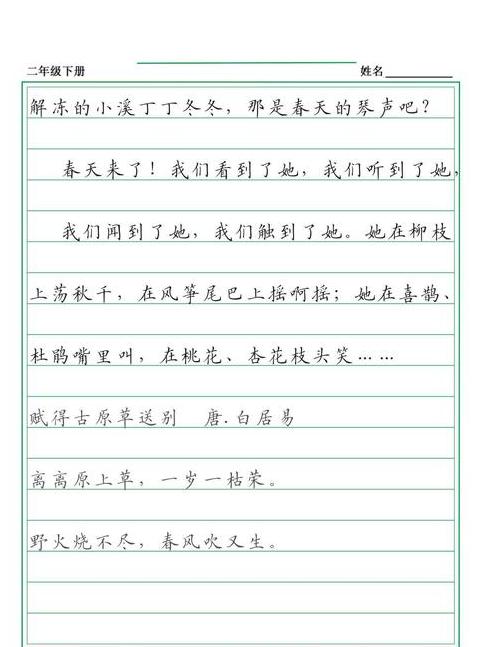 二年级下册 姓名
解冻的小溪丁丁冬冬，那是春天的琴声吧？
春天来了！我们看到了她，我们听到了她，
我们闻到了她，我们触到了她。她在柳枝
上荡秋千，在风筝尾巴上摇啊摇；她在喜鹊、
杜鹃嘴里叫，在桃花、杏花枝头笑……
赋得古原草送别 唐.白居易
离离原上草，一岁一枯荣。
野火烧不尽，春风吹又生。